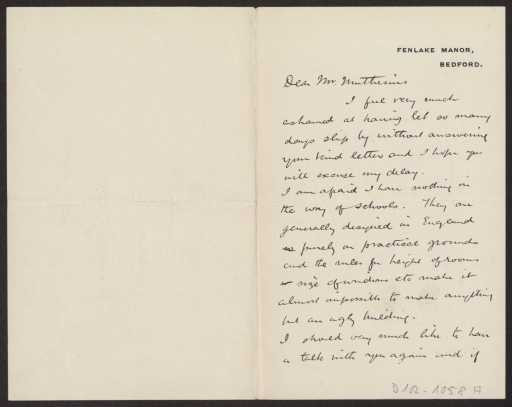 FENLAKE MANOR,
BEDFORD.
Dear Mr. Muthesius
I feel very much
ashamed at having let so many
days slip by without answering
your kind letter and I hope you
will excuse my delay.
I am afraid I have nothing in
the way of schools. They are
generally designed in England
purely on practical grounds
and the rules for height of rooms
size of windows etc make it
almost impossible to make anything
but an ugly building.
I should very much like to have
a talk with you again and if
D102-1058 A